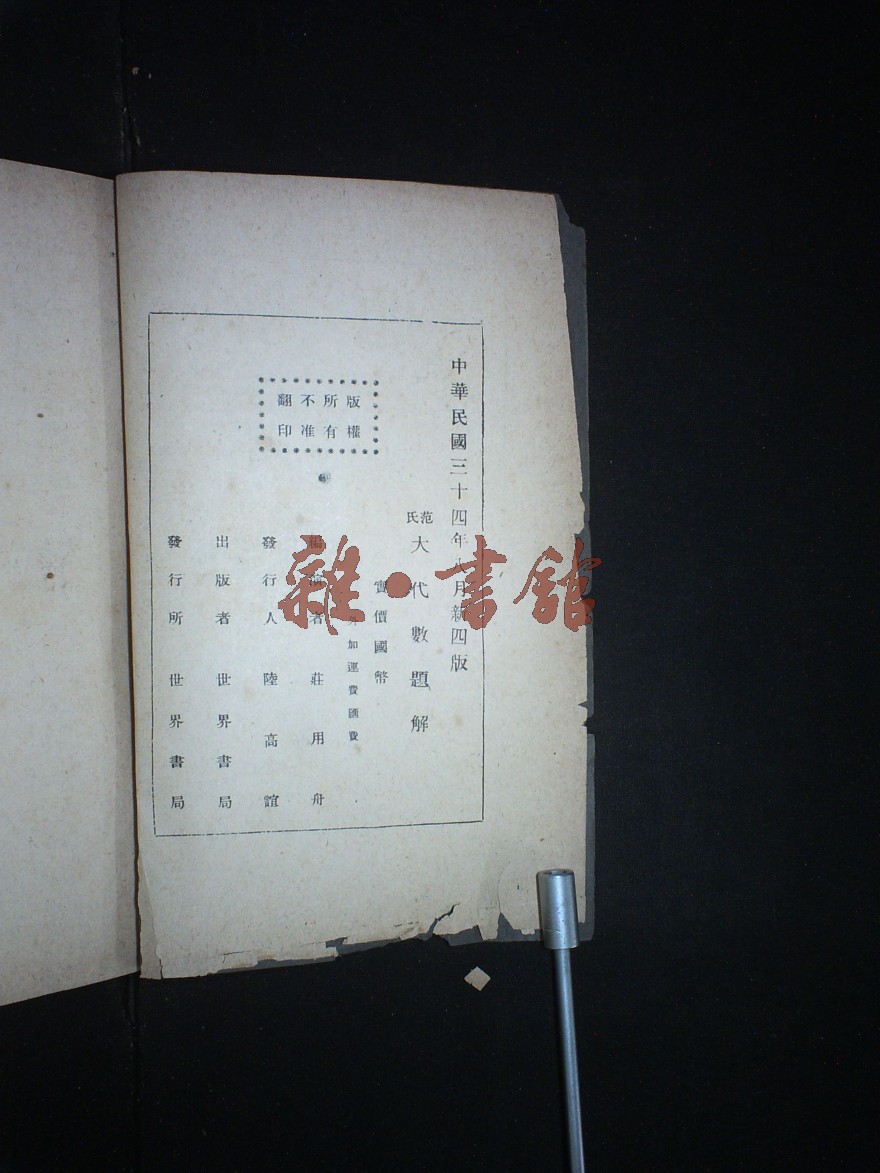 中華民國三十四年八月新四版
范氏大代數題解
實價國幣
外加運費匯費
編演者 莊用舟
發行人 陸高誼
出版者 世界書局
發行所 世界書局
版權所有不准翻印
雜·書館